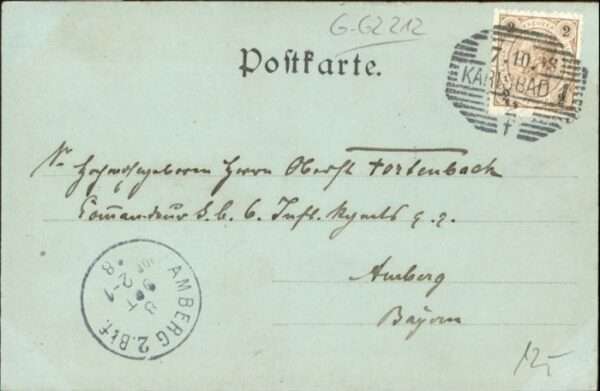 G-G2212
Postkarte.
2 2
7.10.98
KARLSBAD 1
Sr Hochwohlgeboren Herrn Oberst Fortenbach
Commandeur d. b. 6. Inft. Regmts
Amberg
Bayern
AMBERG 2. Btf.
8
12-